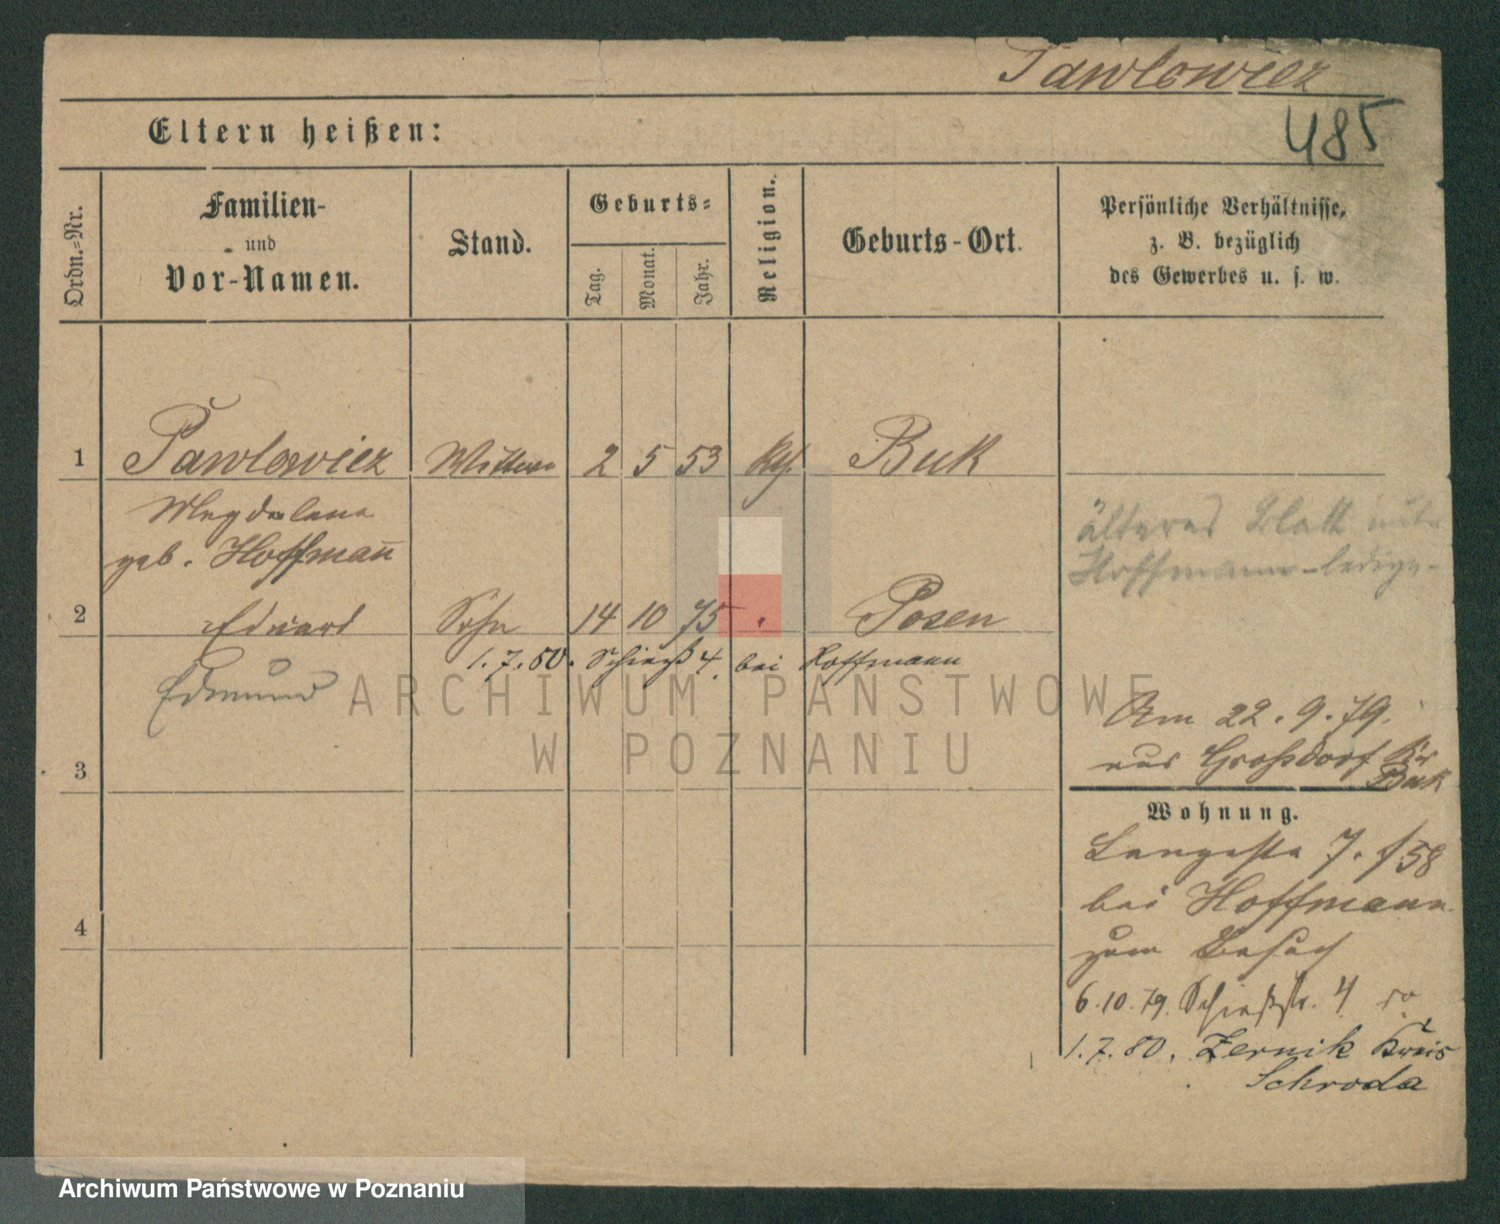 Pawlowicz
485
Eltern heißen:
Ordn.-Nr.
Familien-
und
Vor-Namen.
Stand.
Geburts-
Tag.
Monat.
Jahr.
Religion.
Geburts-Ort.
Persönliche Verhältnisse,
z. B. bezüglich
des Gewerbes u. s. w.
1 Pawlowicz Wittwe 2 5 53 kth. Buk
Magdalena
geb. Hoffmann
älteres Blatt
Hoffmann-ledige-
2 Eduard Sohn 14 10 75 " Posen
1.7.80. Schieß 4. bei Hoffmann
Edmund
Am 22.9.79.
aus Großdorf Krs
Buk
3
Wohnung.
Langestr 7. /58
bei Hoffmann
zum Besuch
4
6.10.79. Schießstr. 4
1.7.80. Zernik Kreis
Schroda
ARCHIWUM PAŃSTWOWE
W POZNANIU
Archiwum Państwowe w Poznaniu